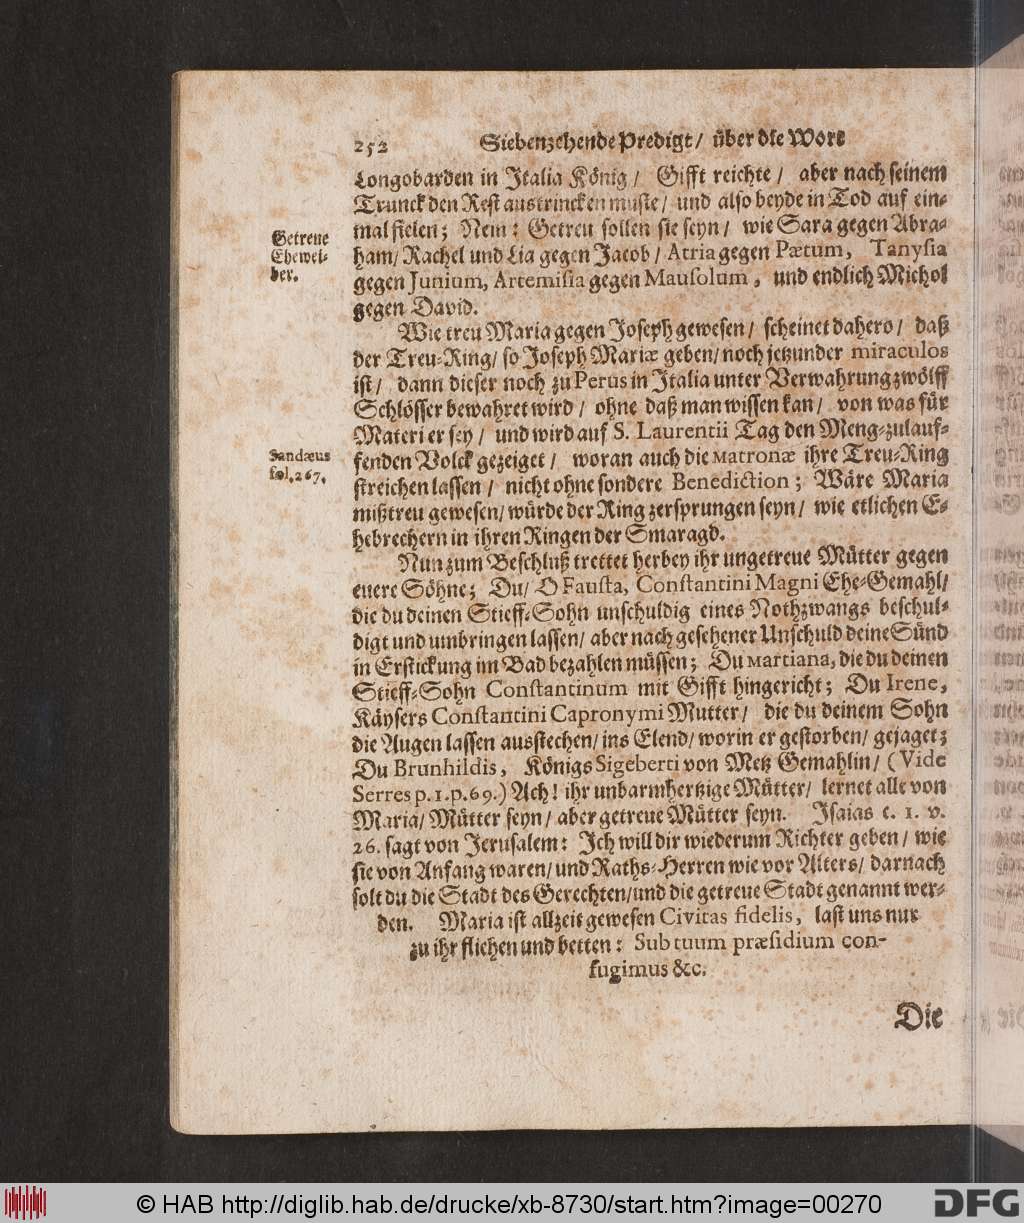 252 Siebenzehende Predigt/ über die Wort
Longobarden in Italia König/ Gifft reichte/ aber nach seinem
Trunck den Rest austrincken muste/ und also beyde in Tod auf ein-
mal fielen; Nem: Getreu sollen sie seyn/ wie Sara gegen Abra-
Getreue
Ehewei-
ber.
ham/ Rachel und Lia gegen Jacob/ Atria gegen Pætum, Tanysia
gegen Junium, Artemisia gegen Mausolum, und endlich Michol
gegen David.
Wie treu Maria gegen Joseph gewesen/ scheinet dahero/ daß
der Treu-Ring/ so Joseph Mariæ geben/ noch jetzunder miraculos
ist/ dann dieser noch zu Perus in Italia unter Verwahrung zwölff
Schlösser bewahret wird/ ohne daß man wissen kan/ von was für
Materi er sey/ und wird auf S. Laurentii Tag den Meng-zulauf-
Sandæus
fol. 267.
fenden Volck gezeiget/ woran auch die Matronæ ihre Treu-Ring
streichen lassen/ nicht ohne sondere Benediction; Wäre Maria
mißtreu gewesen/ würde der Ring zersprungen seyn/ wie etlichen E-
hebrechern in ihren Ringen der Smaragd.
Nun zum Beschluß trettet herbey ihr ungetreue Mütter gegen
euere Söhne; Du/ O Fausta, Constantini Magni Ehe-Gemahl/
die du deinen Stieff-Sohn unschuldig eines Nothzwangs beschul-
digt und umbringen lassen/ aber nach gesehener Unschuld deine Sünd
in Erstickung im Bad bezahlen müssen; Du Martiana, die du deinen
Stieff-Sohn Constantinum mit Gifft hingericht; Du Irene,
Käysers Constantini Capronymi Mutter/ die du deinem Sohn
die Augen lassen ausstechen/ ins Elend/ worin er gestorben/ gejaget;
Du Brunhildis, Königs Sigeberti von Metz Gemahlin/ (Vide
Serres p. 1. p. 69.) Ach! ihr unbarmhertzige Mütter/ lernet alle von
Maria/ Mütter seyn/ aber getreue Mütter seyn. Isaias c. 1. v.
26. sagt von Jerusalem: Ich will dir wiederum Richter geben/ wie
sie von Anfang waren/ und Raths-Herren wie vor Alters/ darnach
solt du die Stadt des Gerechten/ und die getreue Stadt genannt wer-
den. Maria ist allzeit gewesen Civitas fidelis, last uns nur
zu ihr fliehen und betten: Sub tuum præsidium con-
fugimus &c.
Die
© HAB http://diglib.hab.de/drucke/xb-8730/start.htm?image=00270
DFG